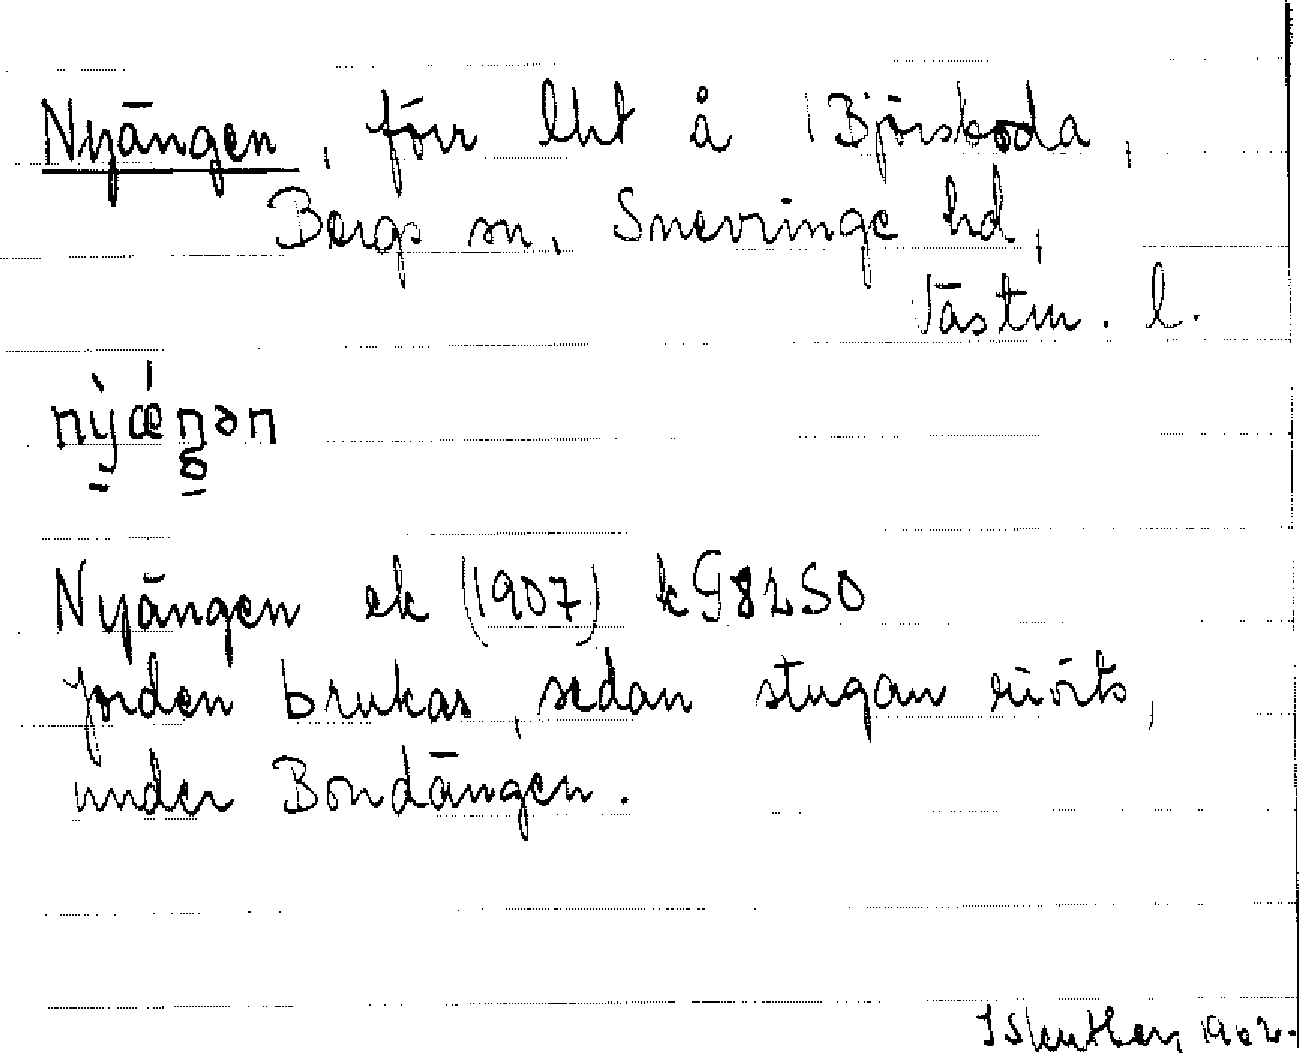 Nyängen, förr lht å Björskoda,
Bergs sn, Snevringe hd,
Västm. l.
nỳǽŋən
Nyängen ek (1907) k G82SO
jorden brukas, sedan stugan rivits,
under Bondängen.
1962.